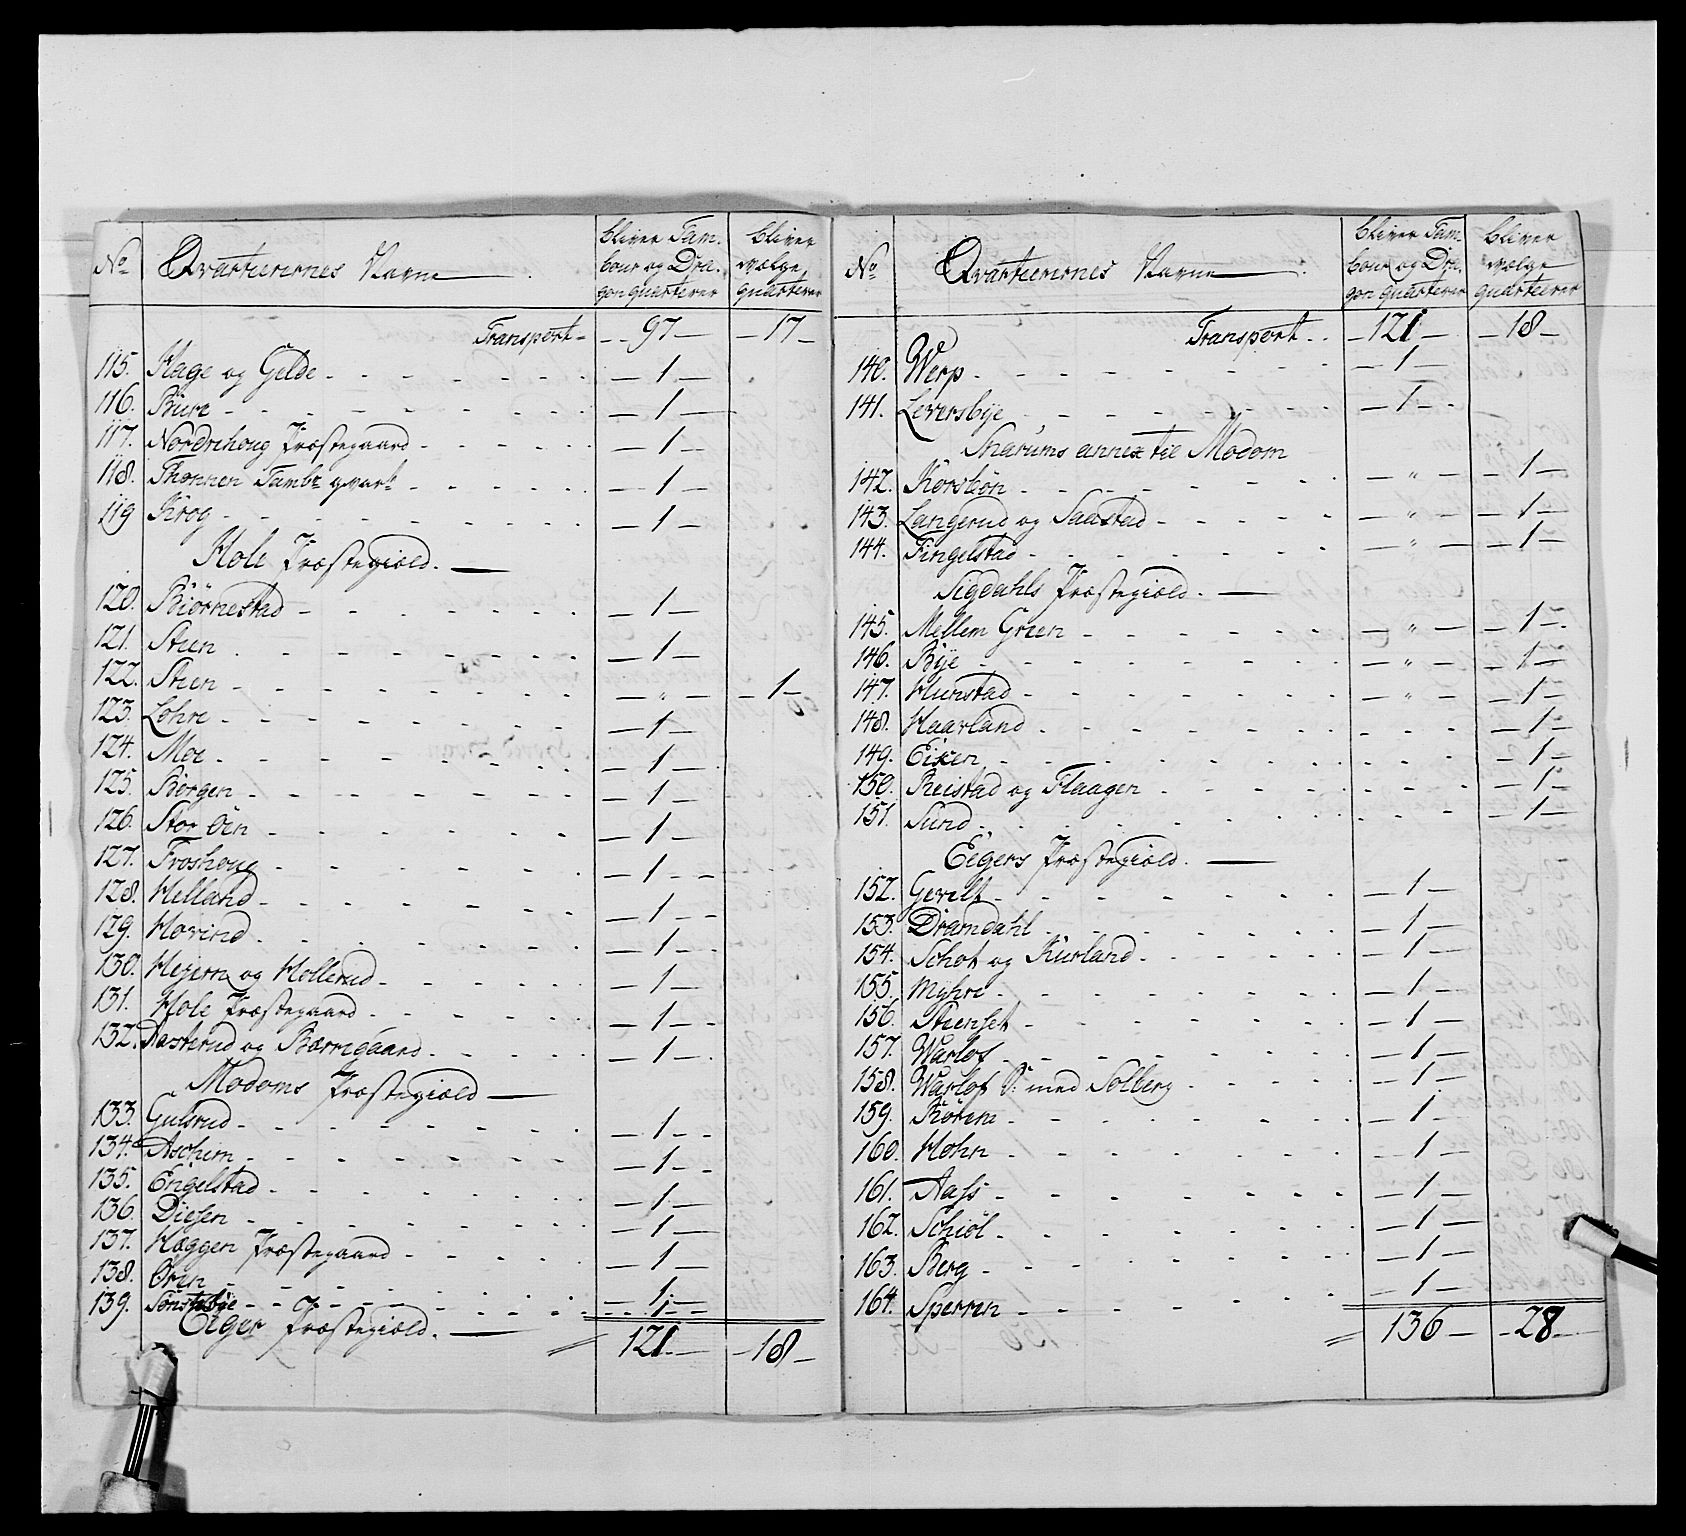 No Qvarterernes Navne bliver Tam- bliver
bour og Dra- vælge
gon quarterer quarterer
Transport - 97 - - 17 -
115. Hage og Gelde - 1 -
116. Bure - 1 -
117. Nordrehoug Præstegaard - 1 -
118. Thonnen Tambr qvartr - 1 -
119 Krog - 1 -
Hole Præstegield.
120. Biørnestad - 1 -
121. Steen - 1 -
122. Steen - " - - 1 -
123. Lohre - 1 -
124. Moe - 1 -
125. Børgen - 1 -
126. Stor Øen - 1 -
127. Froshoug - 1 -
128. Helland - 1 -
129. Hovind - 1 -
130. Hejern og Hollerud - 1 -
131. Hole Præstegaard - 1 -
132. Aasterud og Bærregaard - 1 -
Modoms Præstegield
133. Gulsrud - 1 -
134. Aschim - 1 -
135. Engelstad - 1 -
136. Diesen - 1 -
137. Hæggen Præstegaard - 1 -
138. Øren - 1 -
139. Sønstebye - 1 -
Eiger Præstegield.
121 - - 18 -
No Qvarterernes Navne bliver Tam- bliver
bour og Dra- vælge
gon quarterer quarterer
Transport - 121 - - 18 -
140. Werp - 1 -
141. Leversbye - 1 -
Snarums annex til Modom
142. Korsbøn - " - - 1 -
143. Langerud og Saastad - " - - 1 -
144. Fingelstad - " - - 1 -
Sigdahls Præstegield.
145. Mellem Green - " - - 1 -
146. Bye - " - - 1 -
147. Hunstad - " - - 1 -
148. Haarland - 1 -
149. Eixen - 1 -
150. Reistad og Flaagen - 1 -
151. Sund - 1 -
Eegers Præstegield.
152. Gevelt - 1 -
153. Dramdahl - 1 -
154. Schot og Kurland - 1 -
155. Myhre - 1 -
156. Steenset - 1 -
157. Warlof - 1 -
158. Warlof S: med Solberg - 1 -
159. Røren - 1 -
160. Hohn - 1 -
161. Aass - 1 -
162. Schiøl - 1 -
163. Berg - 1 -
164. Sperren - 1 -
136 - - 28 -